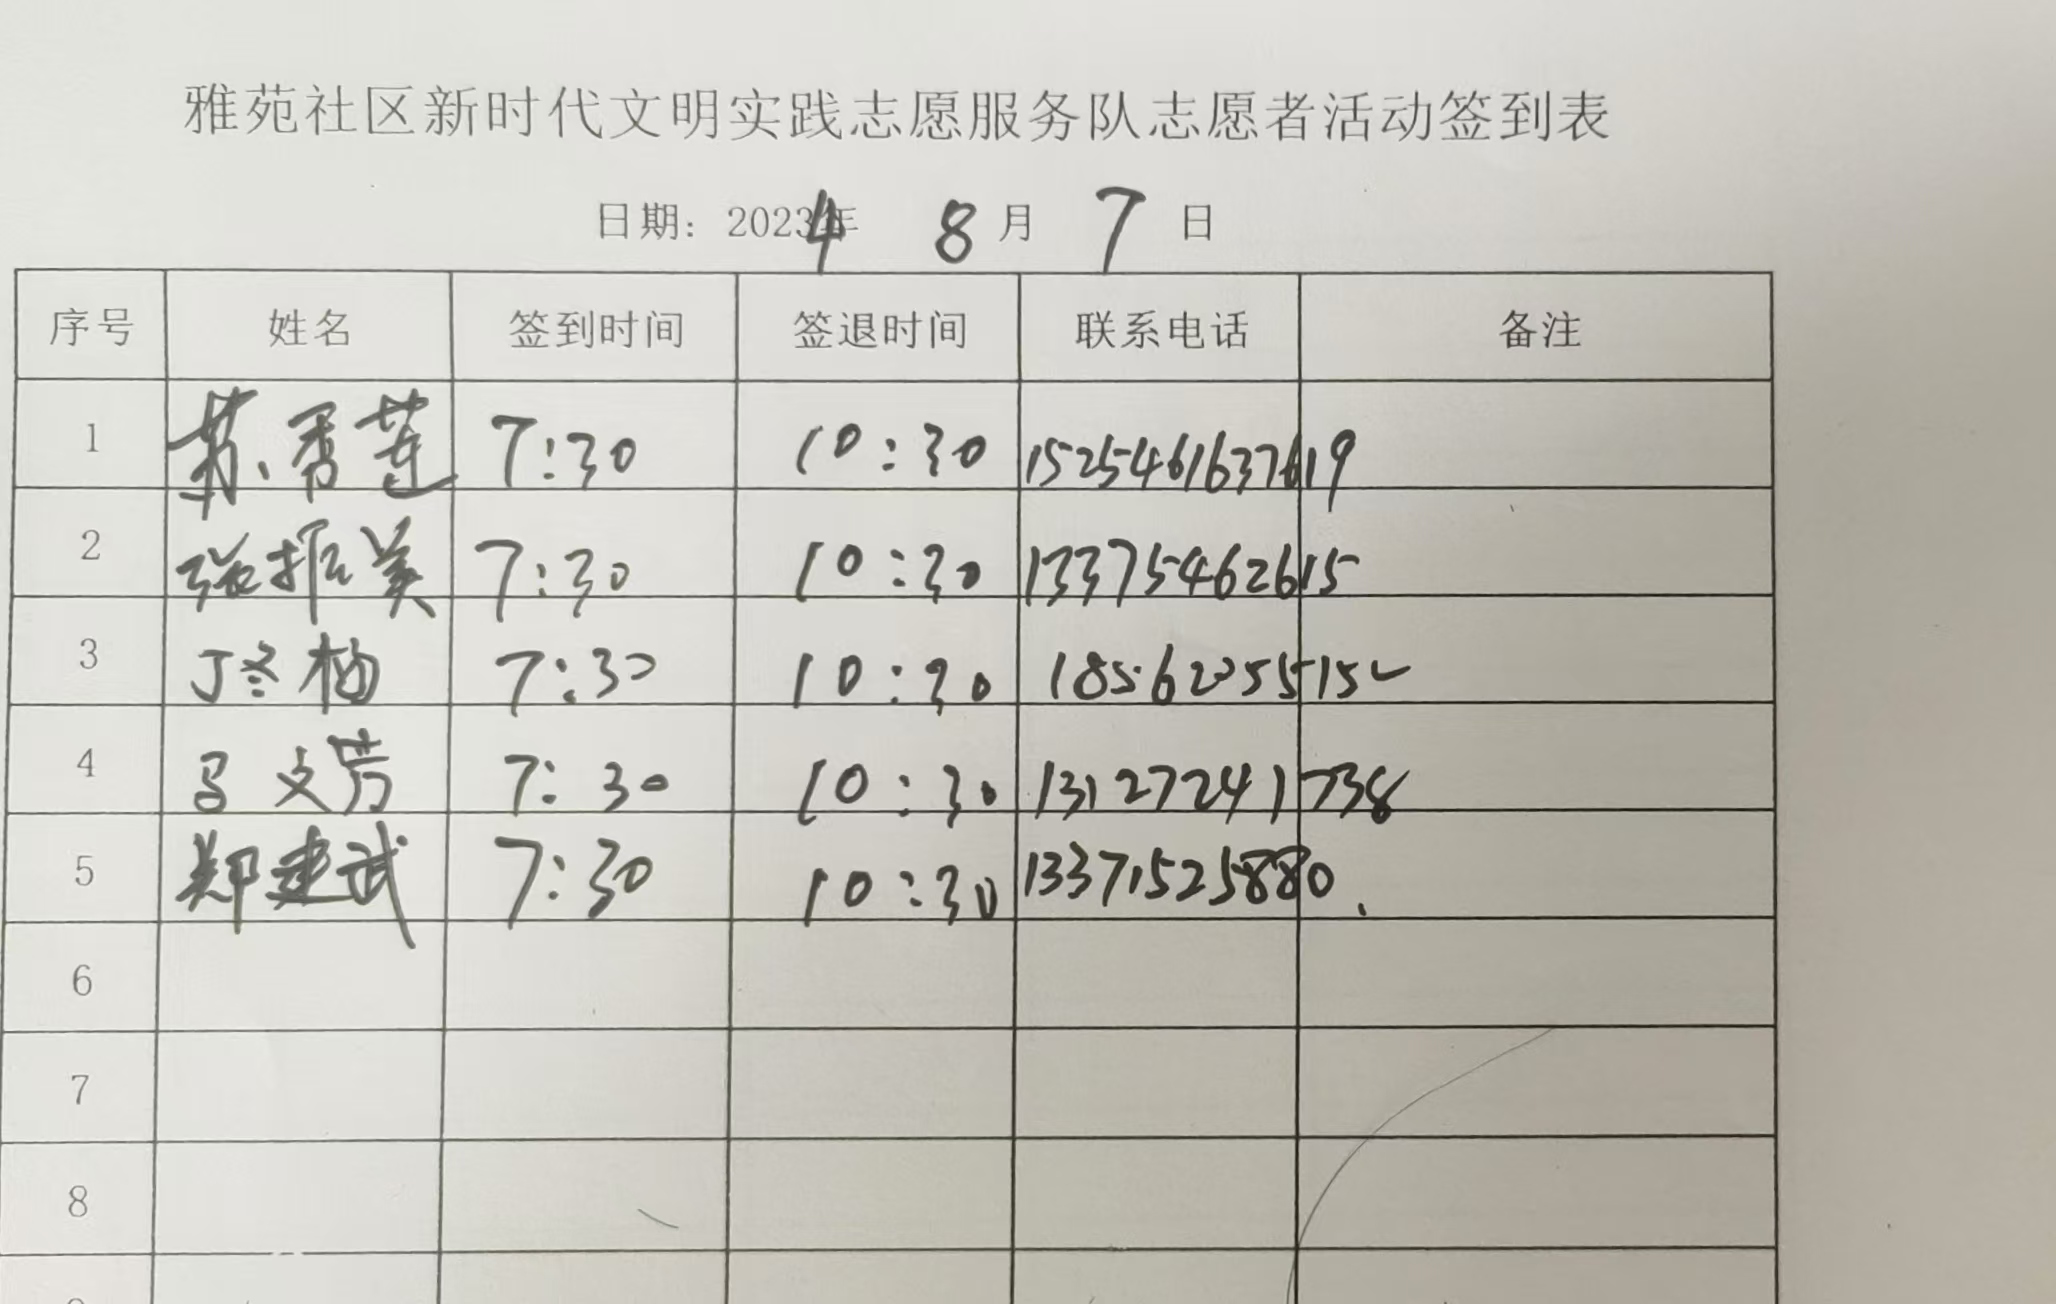 雅苑社区新时代文明实践志愿服务队志愿者活动签到表
日期：2024年 8月 7日
序号 姓名 签到时间 签退时间 联系电话 备注
1 苏秀莲 7:30 10:30 1525461637619
2 张振美 7:30 10:30 13375462615
3 丁冬梅 7:30 10:30
4 吕文芳 7:30 10:30 13127241738
5 郑建武 7:30 10:30 13371525880
6
7
8